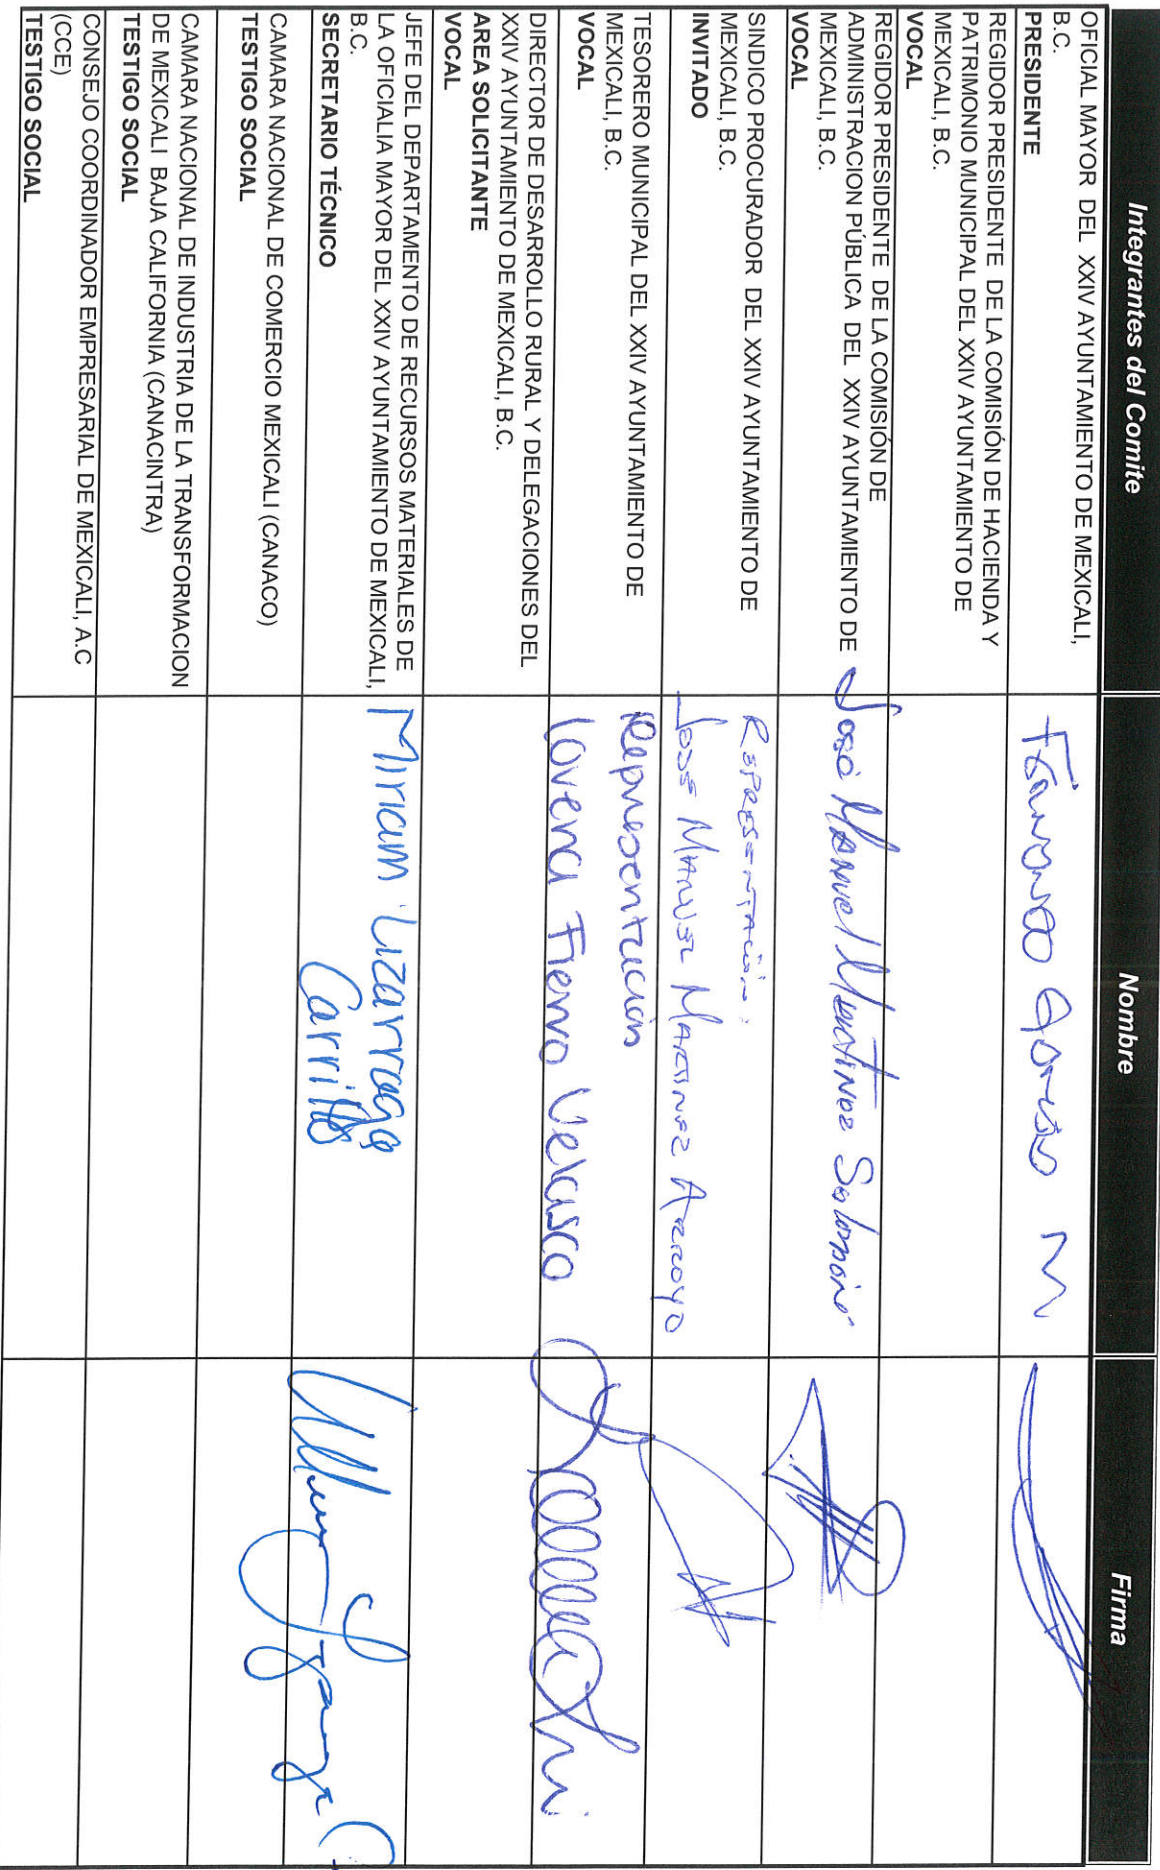 Integrantes del Comite
Nombre
Firma
OFICIAL MAYOR DEL XXIV AYUNTAMIENTO DE MEXICALI,
B.C.
PRESIDENTE
Fernando
M
REGIDOR PRESIDENTE DE LA COMISIÓN DE HACIENDA Y
PATRIMONIO MUNICIPAL DEL XXIV AYUNTAMIENTO DE
MEXICALI, B.C.
VOCAL
REGIDOR PRESIDENTE DE LA COMISIÓN DE
ADMINISTRACION PÚBLICA DEL XXIV AYUNTAMIENTO DE
MEXICALI, B.C.
VOCAL
José Manuel Martinez Salomón
SINDICO PROCURADOR DEL XXIV AYUNTAMIENTO DE
MEXICALI, B.C.
INVITADO
REPRESENTACIÓN:
JOSE MANUEL MARTINEZ ARROYO
TESORERO MUNICIPAL DEL XXIV AYUNTAMIENTO DE
MEXICALI, B.C.
VOCAL
Representación
Lorena Fierro Velasco
DIRECTOR DE DESARROLLO RURAL Y DELEGACIONES DEL
XXIV AYUNTAMIENTO DE MEXICALI, B.C.
AREA SOLICITANTE
VOCAL
JEFE DEL DEPARTAMENTO DE RECURSOS MATERIALES DE
LA OFICIALIA MAYOR DEL XXIV AYUNTAMIENTO DE MEXICALI,
B.C.
SECRETARIO TÉCNICO
Miriam Lizarraga
Carrillo
CAMARA NACIONAL DE COMERCIO MEXICALI (CANACO)
TESTIGO SOCIAL
CAMARA NACIONAL DE INDUSTRIA DE LA TRANSFORMACION
DE MEXICALI BAJA CALIFORNIA (CANACINTRA)
TESTIGO SOCIAL
CONSEJO COORDINADOR EMPRESARIAL DE MEXICALI, A.C
(CCE)
TESTIGO SOCIAL